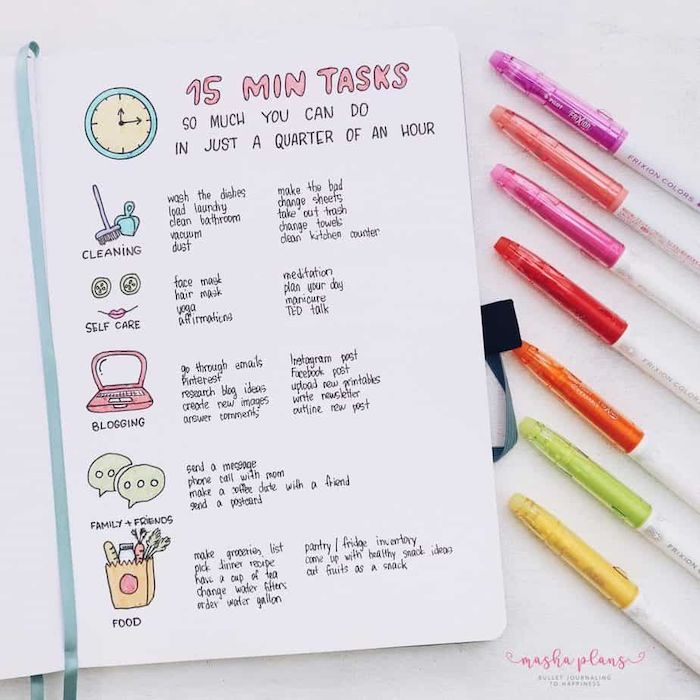 15 MIN TASKS
SO MUCH YOU CAN DO
IN JUST A QUARTER OF AN HOUR
CLEANING
wash the dishes
load laundry
clean bathroom
vacuum
dust
make the bad
change sheets
take out trash
change towels
clean kitchen counter
SELF CARE
face mask
hair mask
yoga
affirmations
meditation
plan your day
manicure
TED talk
BLOGGING
go through emails
Pinterest
research blog ideas
create new images
answer comments
Instagram post
Facebook post
upload new printables
write newsletter
outline new post
FAMILY + FRIENDS
send a message
phone call with mom
make a coffee date with a friend
send a postcard
FOOD
make groceries list
pick dinner recipe
have a cup of tea
change water filters
order water gallon
pantry / fridge inventory
come up with healthy snack ideas
cut fruits as a snack
PILOT FRIXION
FRIXION COLORS
FRIXION COLORS
FRIXION
masha plans
BULLET JOURNALING
TO HAPPINESS